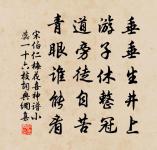 垂垂生井上
游子休整冠
道旁徒自苦
青眼谁能看
宋伯仁梅花喜神谱小
蕊一十六枝